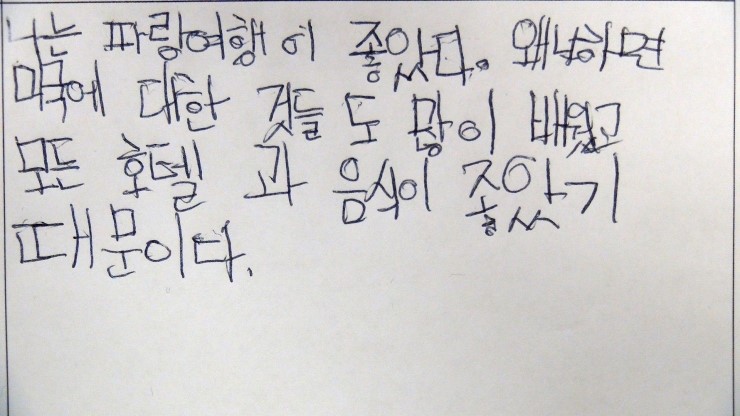 나는 파랑여행이 좋았다. 왜냐하면
미국에 대한 것들도 많이 배웠고
모든 호텔과 음식이 좋았기
때문이다.